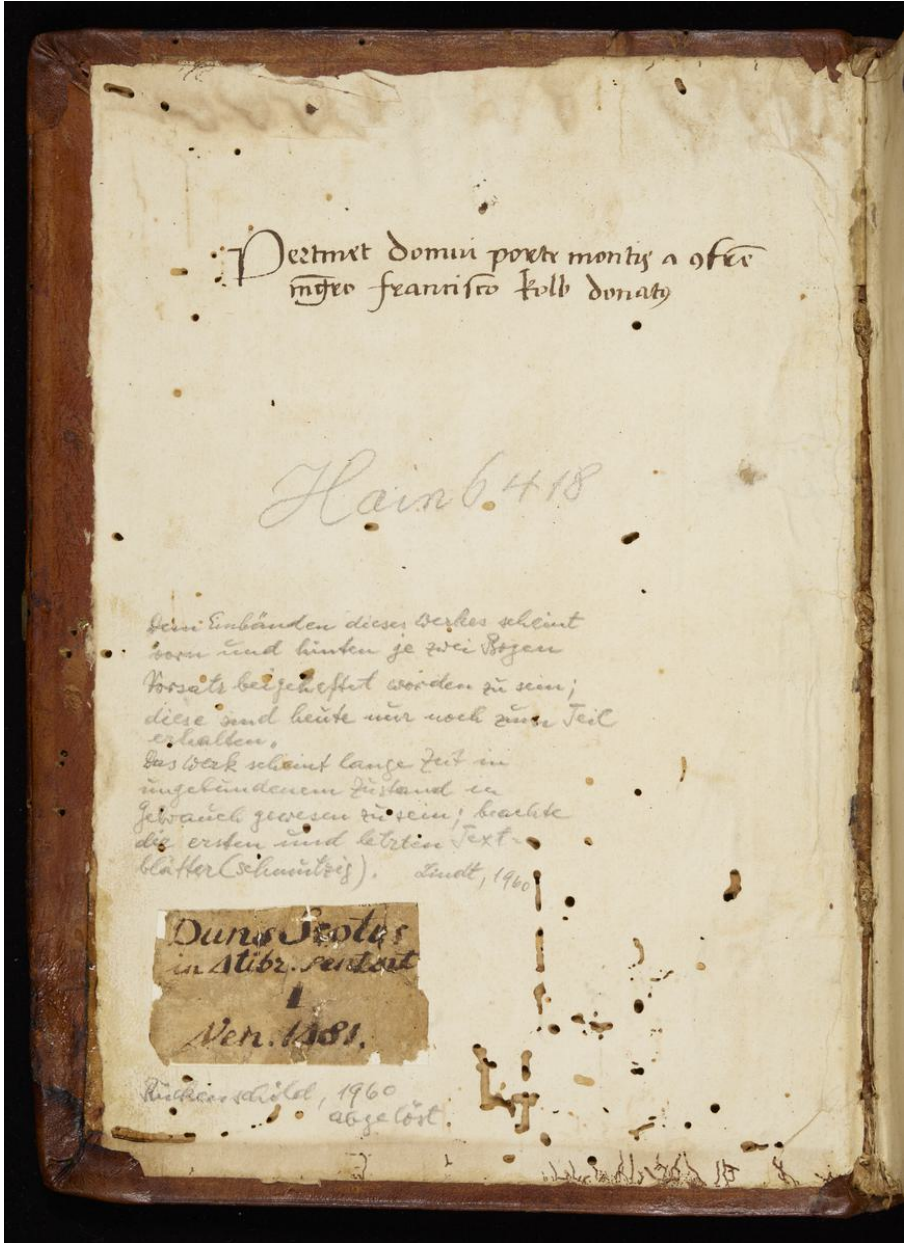 Pertinet domui porte montis a ꝯfrẽ
mg̃ro francisco kolb donatꝰ
Hain 6418
Dem Einbänden dieses Werkes scheint
vorn und hinten je zwei Bogen
Vorsatz beigeheftet worden zu sein;
diese sind heute nur noch zum Teil
erhalten.
Das Werk scheint lange Zeit in
ungebundenem Zustand in
Gebrauch gewesen zu sein; beachte
die ersten und letzten Text-
blätter (schmutzig). Lindt, 1960
Duns Scotus
in 4 libr. sentent
I
Ven. 1481.
Rückenschild, 1960
abgelöst.